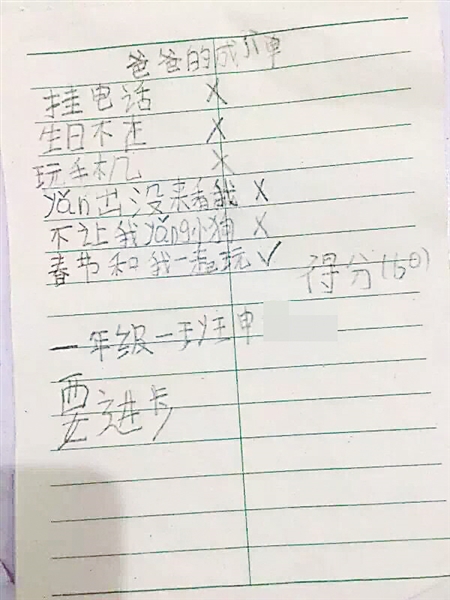 爸爸的成单
挂电话 X
生日不 X
玩手机 X
yǎn出没来看我 X
不让我yǎng小狗 X
春节和我一起玩 ✓
得分(60)
一年级一班
要进步